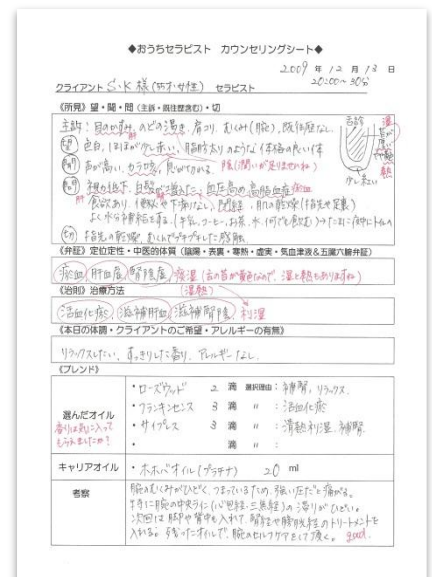 ◆おうちセラピスト カウンセリングシート◆
2009 年 12 月 13 日
20:00～30分
クライアント S.K 様 (55才・女性) セラピスト
《所見》望・聞・問（主訴・既往歴含む）・切
主訴：目のかすみ、のどの渇き、肩コリ、むくみ(腕)、既往歴なし
舌診
湿
望 色白、ほほが少し赤い、脂肪太りのような体格の良い体
熱
聞 声が高い、カラ咳、 陰(潤いが足りませんね)
少し赤い
問 視力低下、白髪が増えた、血圧高め、高脂血症 瘀血
食欲あり、便秘や下痢なし、閉経、肌の乾燥(指先や足裏)
よく水分補給をする。(牛乳、コーヒー、お茶、水、何でも飲む)→たまに夜中にトイレ
切 指先の乾燥、むくんでプヨプヨした感触
《弁証》定位定性・中医的体質（陰陽・表裏・寒熱・虚実・気血津液&五臓六腑弁証）
瘀血 肝血虚 腎陰虚 痰湿 (舌の苔が黄色なので、湿と熱もありますね)
《治則》治療方法 (湿熱)
活血化瘀 滋補肝血 滋補腎陰 利湿
《本日の体調・クライアントのご希望・アレルギーの有無》
リラックスしたい、すっきりした香り、アレルギーなし
《ブレンド》
選んだオイル
香りは気に入って
もらえましたか？
・ローズウッド 2 滴 選択理由：補腎、リラックス
・フランキンセンス 3 滴 〃 ：活血化瘀
・サイプレス 3 滴 〃 ：清熱利湿、補腎
・ 滴 〃 ：
キャリアオイル ・ホホバオイル(プラチナ) 20 ml
考察
腕のむくみがひどく、つまっているため、強い圧だと痛がる。
特に腕の中央ライン(心包経・三焦経)の滞りがひどい。
次回は脚や背中も入れて、腎経や膀胱経のトリートメントを
入れる。残ったオイルで、腕のセルフケアをして頂く。 good.